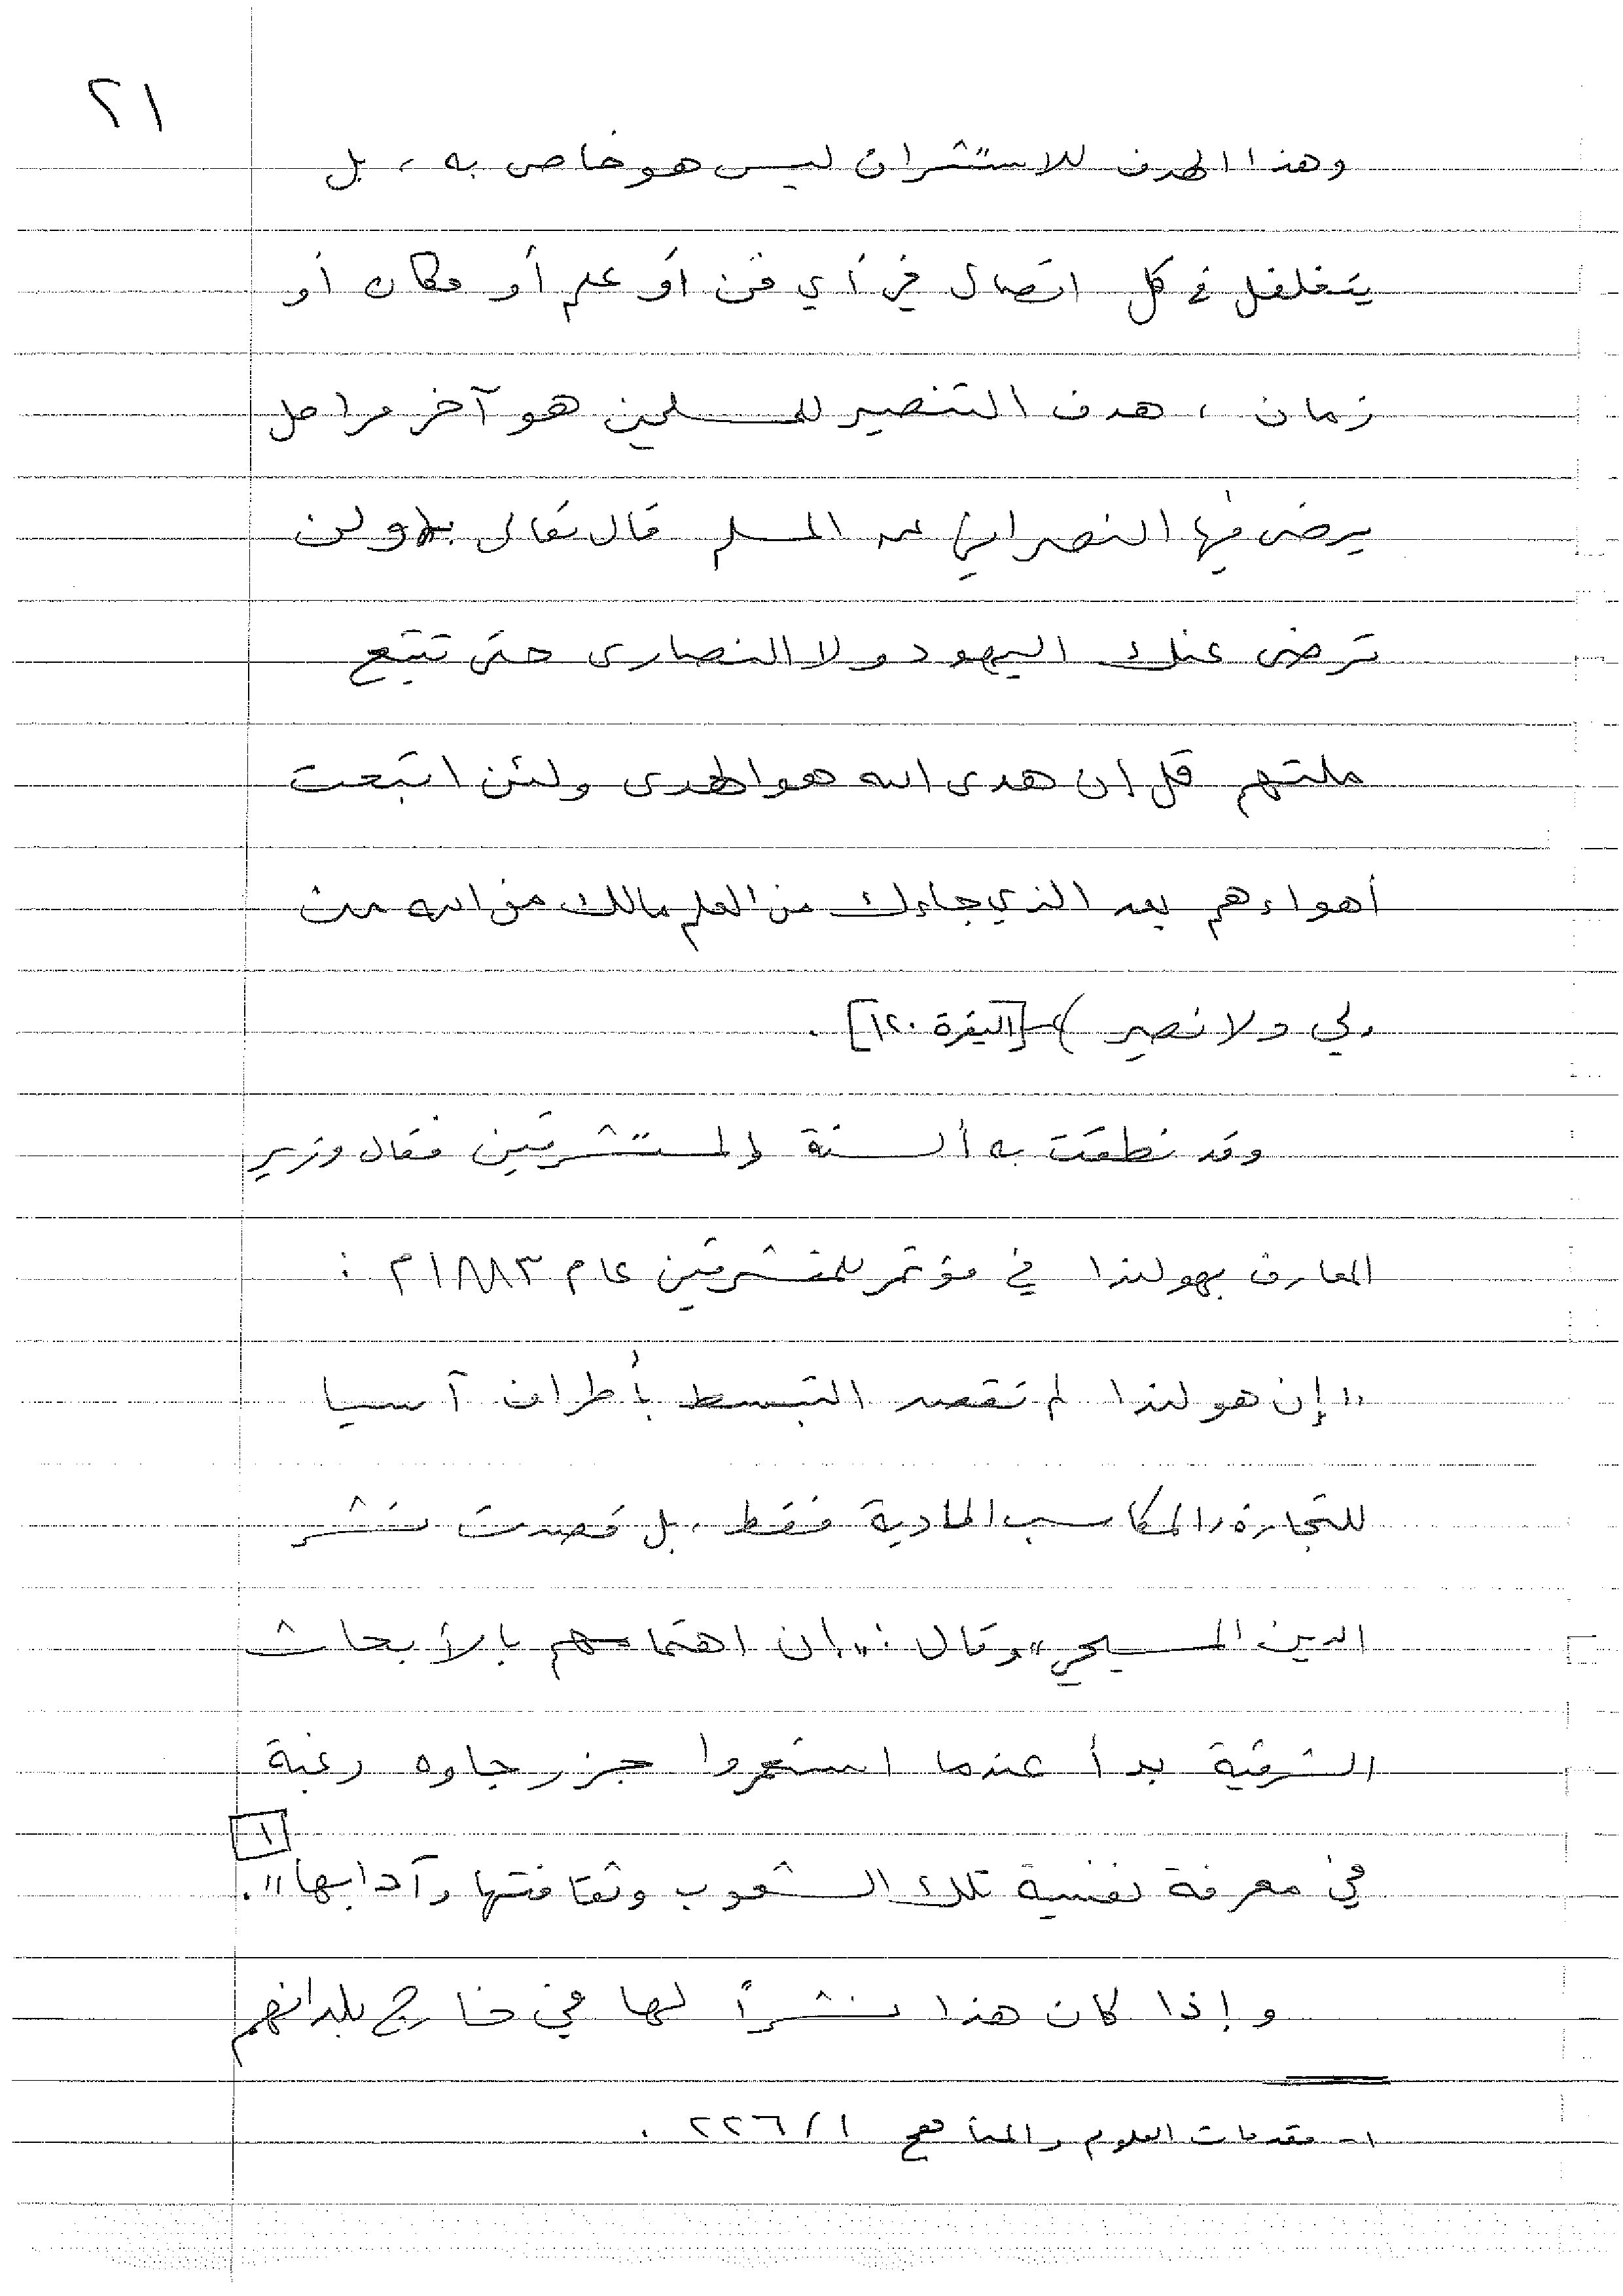 ٢١
وهذا الهدف للاستشراق ليس هو خاص به ، بل
يتغلغل في كل اتصال في أي فن أو علم أو مكان أو
زمان ، هدف التنصير للمسلمين هو آخر مراحل
يرضى فيها النصراني عن المسلم قال تعالى ﴿ولن
ترضى عنك اليهود ولا النصارى حتى تتبع
ملتهم قل إن هدى الله هو الهدى ولئن اتبعت
أهواءهم بعد الذي جاءك من العلم مالك من الله من
ولي ولا نصير ﴾ [البقرة ١٢٠] .
وقد نطقت به ألسنة المستشرقين فقال وزير
المعارف بهولندا في مؤتمر للمشرقين عام ١٨٨٣م :
"إن هولندا لم تقصد التبسط بأطراف آسيا
للتجارة والمكاسب المادية فقط ، بل قصدت نشر
الدين المسيحي" وقال : "إن اهتمامهم بالأبحاث
الشرقية بدأ عندما استعمروا جزر جاوه رغبة
في معرفة نفسية تلك الشعوب وثقافتها وآدابها" . [١]
وإذا كان هذا نشراً لها في خارج بلدانهم
١- مقدمات العلوم والمناهج ١/٢٢٦ .